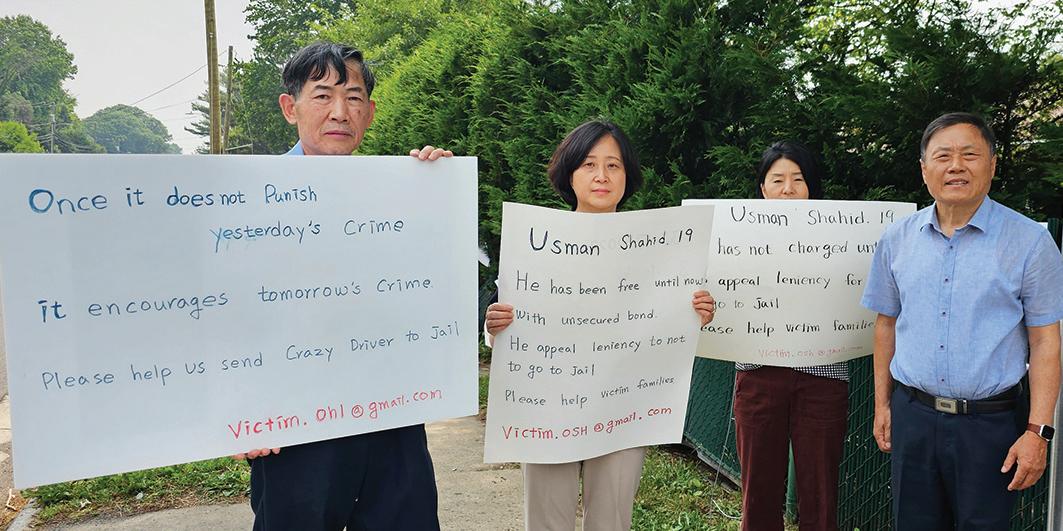 Once it does not Punish
yesterday's Crime
it encourages tomorrow's Crime
Please help us send Crazy Driver to Jail
Victim.Ohl@gmail.com
Usman Shahid. 19
He has been free until now
with unsecured bond.
He appeal leniency to not
to go to Jail
Please help victim families.
Victim.OSH@gmail.com
Usman Shahid. 19
has not charged
appeal leniency for
go to Jail
help victim families
Victim.osh@gmail.com